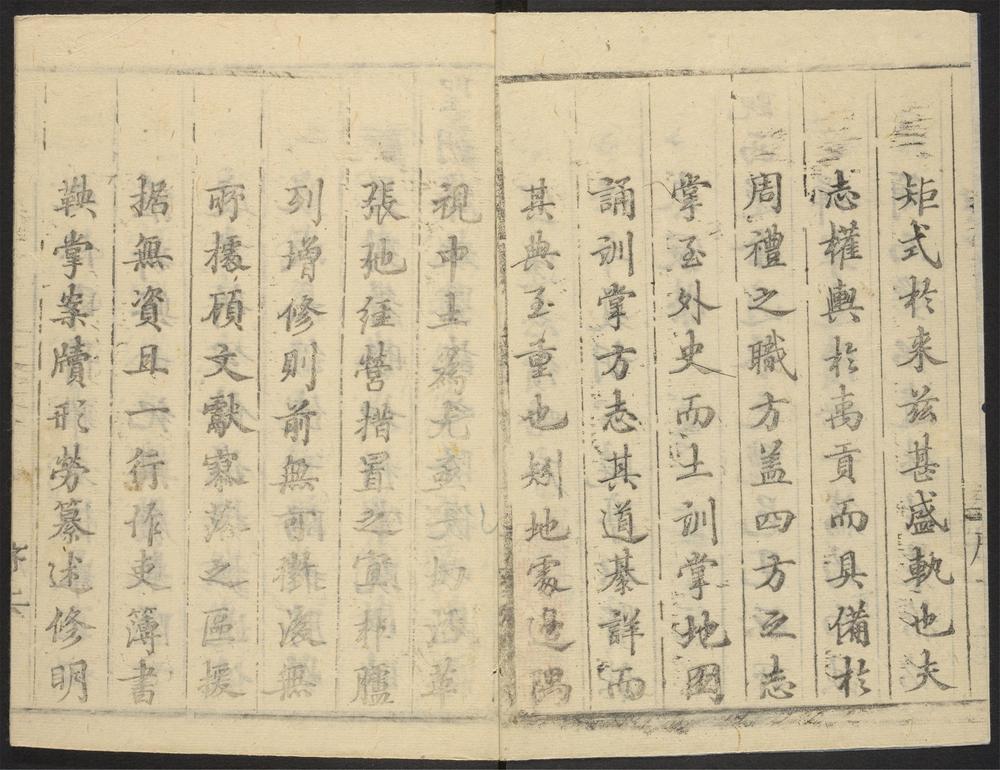 矩式於来茲甚盛軌也夫
志權輿於禹貢而具備於
周禮之職方盖四方之志
掌至外史而土訓掌地圖
誦訓掌方志其道綦詳而
其典至重也矧地處邊隅
視中土為尤
張弛經營措置之宜犂臚
列增修則前無可徵後無
所據顧文獻寥落之區援
据無資且一行作吏簿書
鞅掌案牘形勞纂述修明